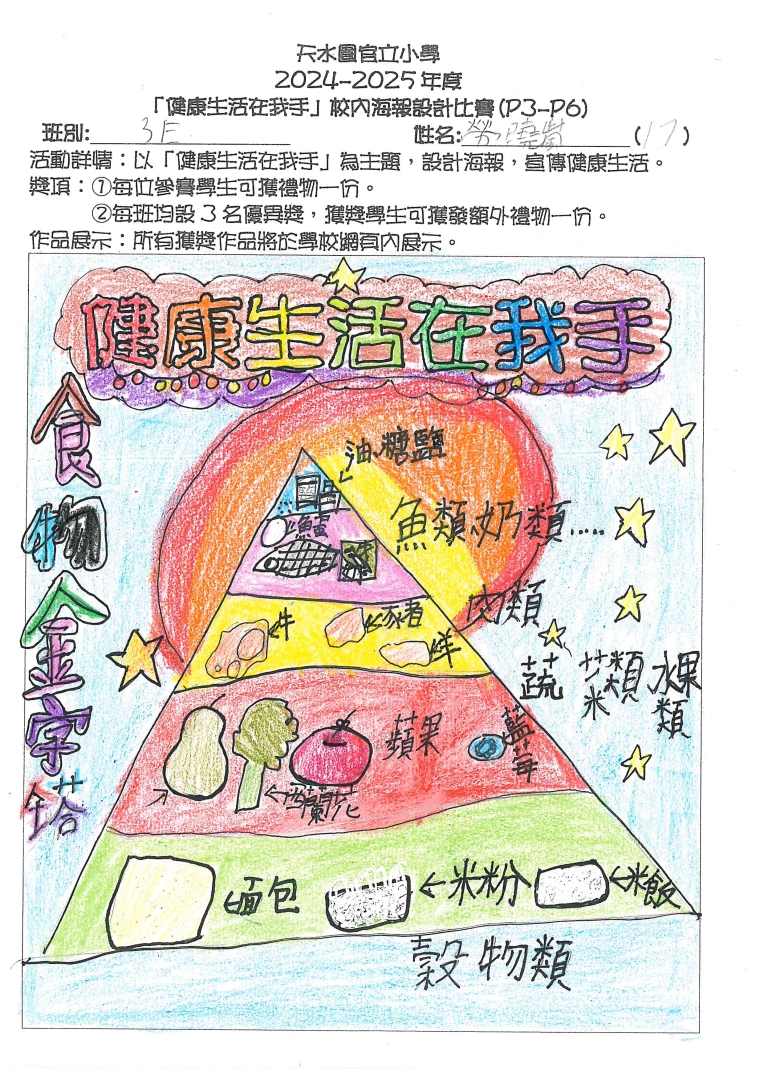 天水圍官立小學
2024-2025年度
「健康生活在我手」校內海報設計比賽(P3-P6)
班別:3E 姓名:勞曉 (17)
活動詳情：以「健康生活在我手」為主題，設計海報，宣傳健康生活。
獎項：①每位參賽學生可獲禮物一份。
②每班均設3名優異獎，獲獎學生可獲發額外禮物一份。
作品展示：所有獲獎作品將於學校網頁內展示。
健康生活在我手
食物金字塔
油糖鹽
魚類、奶類......
肉類
牛
豬
羊
蔬菜類
水果類
蘋果
藍莓
西蘭花
麵包
←米粉
←米飯
穀物類